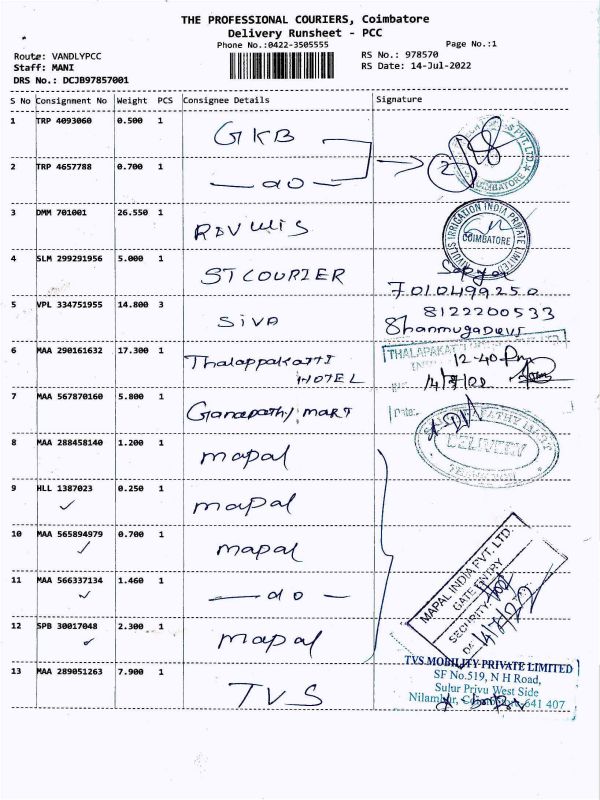 THE PROFESSIONAL COURIERS, Coimbatore
Delivery Runsheet - PCC
Phone No.:0422-3505555
Page No.:1
Route: VANDLYPCC
RS No.: 978570
Staff: MANI
RS Date: 14-Jul-2022
DRS No.: DCJB97857001
S No Consignment No Weight PCS Consignee Details Signature
1 TRP 4093060 0.500 1 GKB
2 TRP 4657788 0.700 1 — do — 2
COIMBATORE
3 DMM 701001 26.550 1 RIVULIS
RIVULIS IRRIGATION INDIA PRIVATE LIMITED
COIMBATORE
4 SLM 299291956 5.000 1 ST COURIER
7010499250
5 VPL 334751955 14.800 3 SIVA
8122200533
6 MAA 290161632 17.300 1 Thalappakatti HOTEL
12-40 Pm
14/7/22
7 MAA 567870160 5.800 1 Ganapathy MART
Date:
DELIVERY
8 MAA 288458140 1.200 1 mapal
9 HLL 1387023 0.250 1 mapal
10 MAA 565894979 0.700 1 mapal
11 MAA 566337134 1.460 1 — do —
12 SPB 30017048 2.300 1 mapal
MAPAL INDIA PVT. LTD.
GATE ENTRY
SECURITY
14/7/22
13 MAA 289051263 7.900 1 TVS
TVS MOBILITY PRIVATE LIMITED
SF No.519, N H Road,
Sulur Privu West Side
Nilambur, Coimbatore-641 407